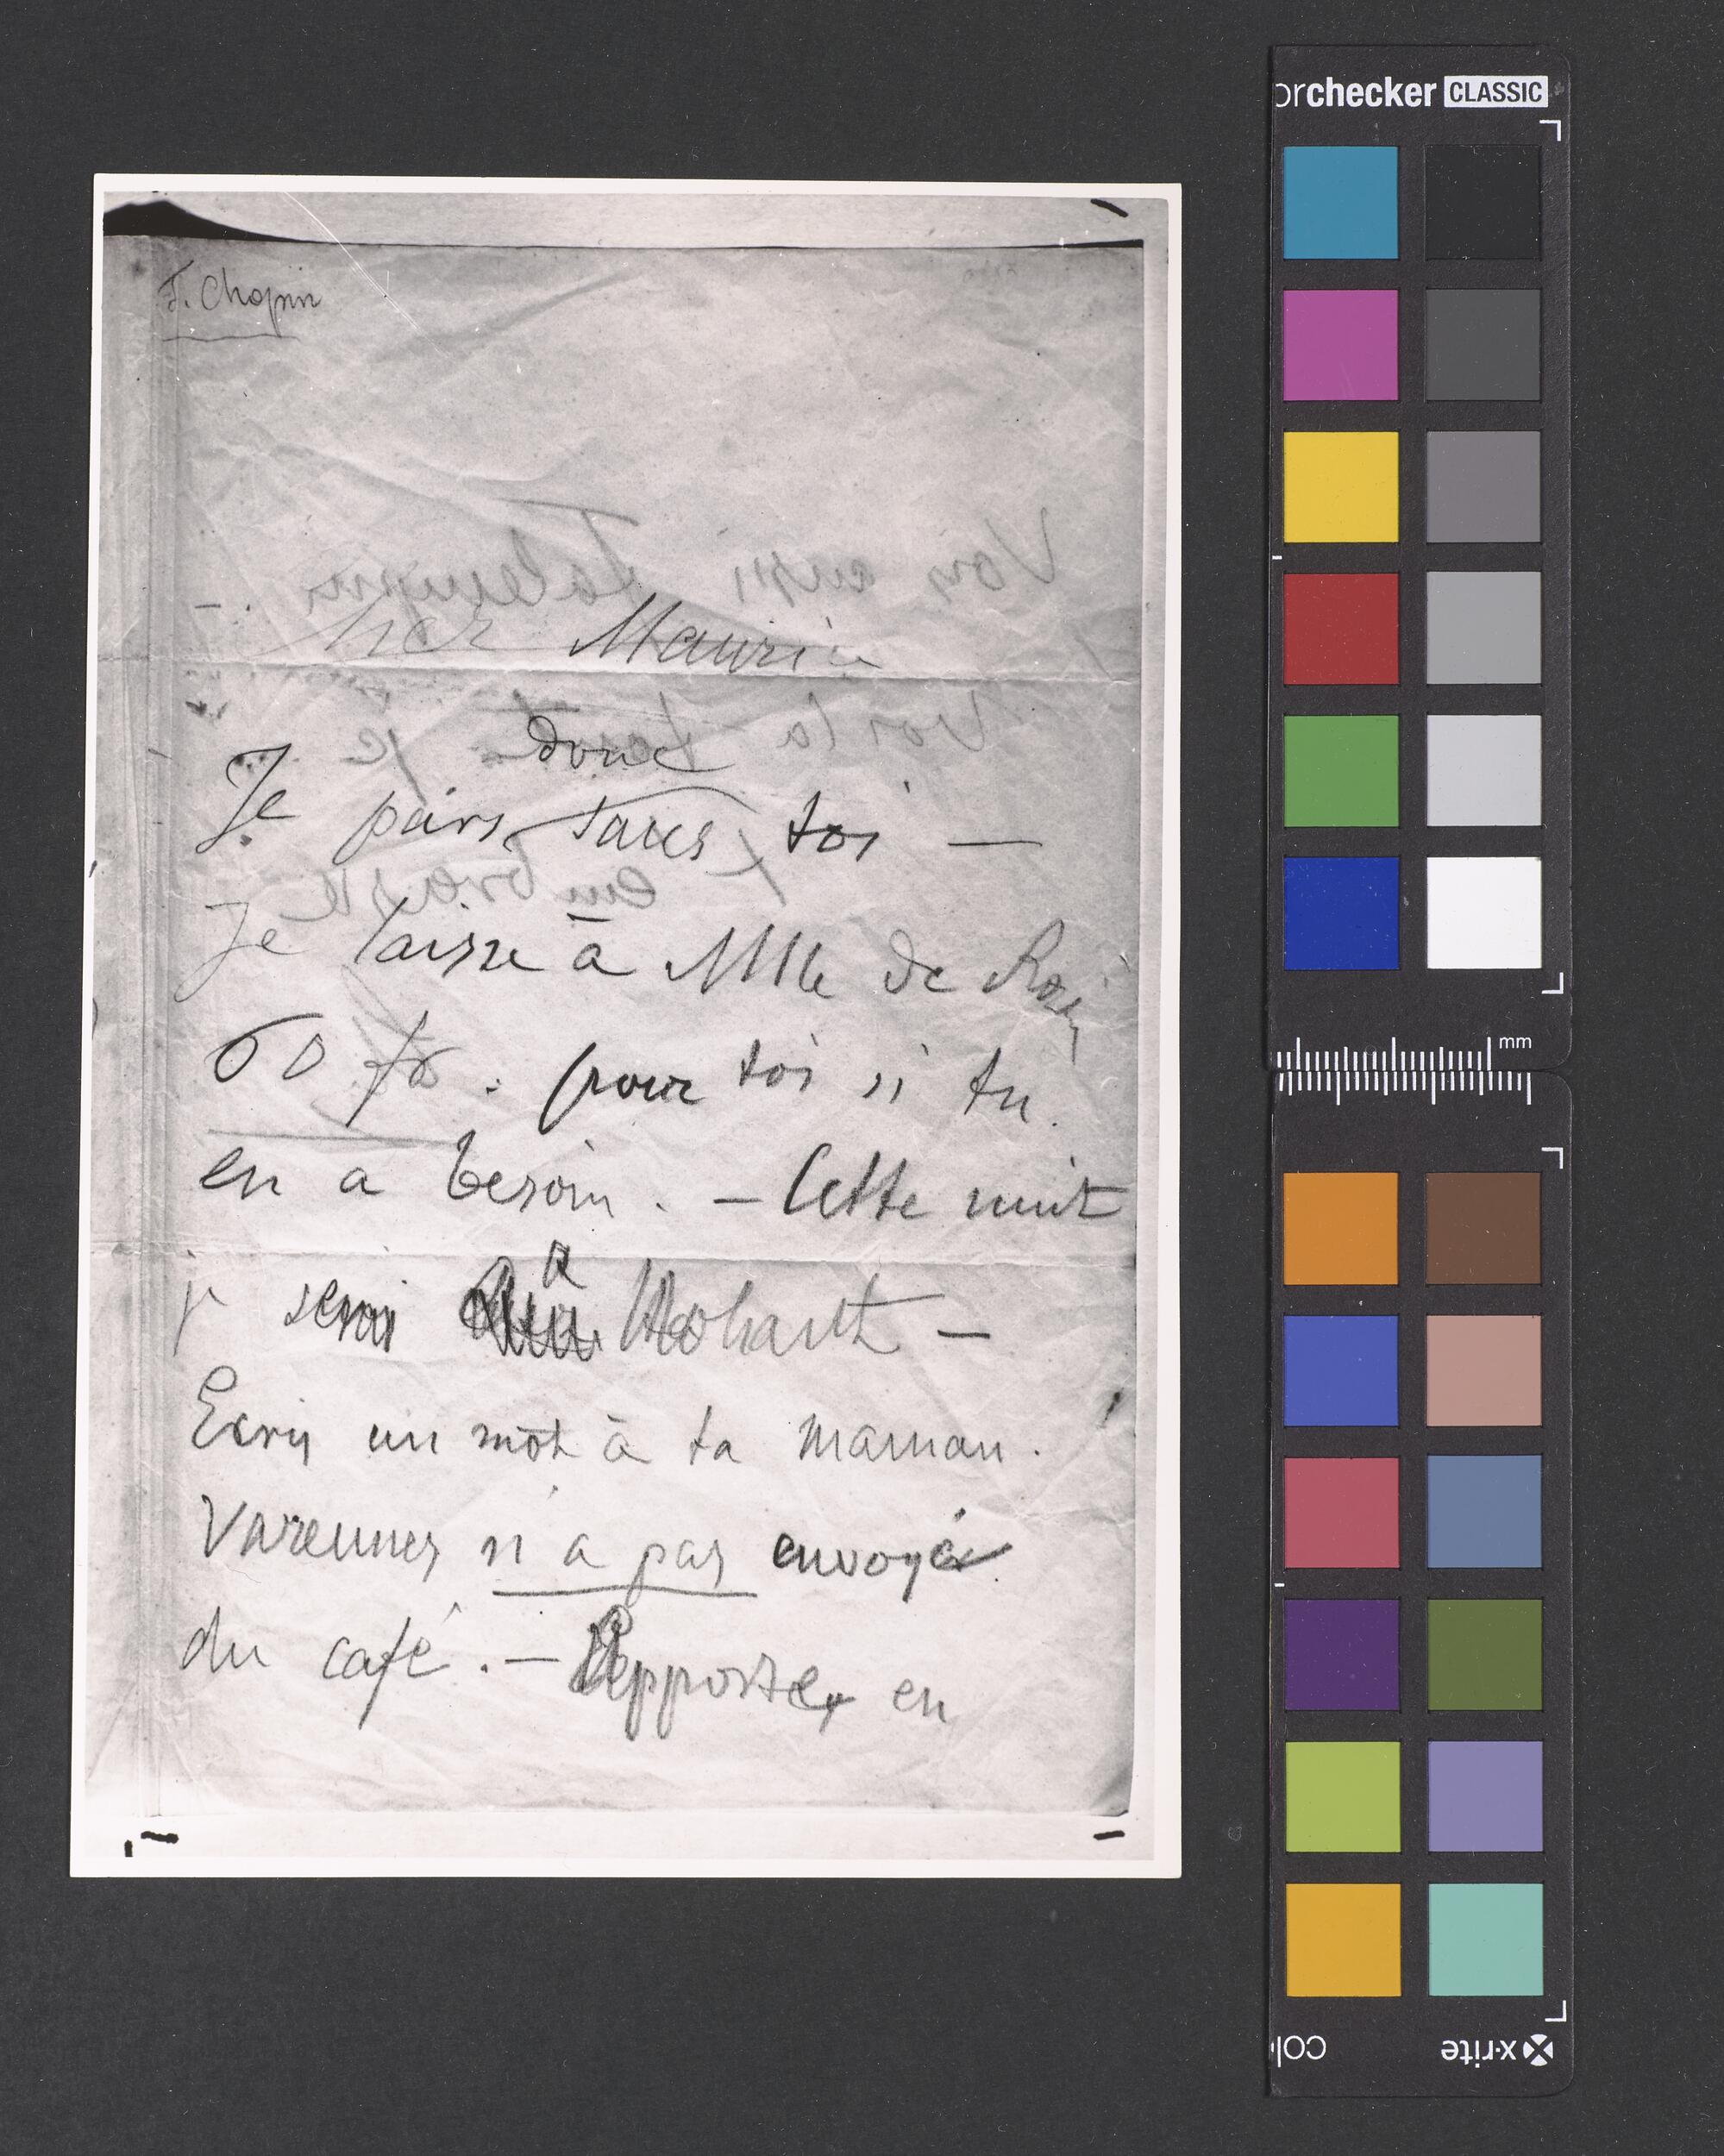 F. Chopin
Cher Maurice
donc
Je pars sans toi —
Je laisse à Mlle de Rozi
60 fr. pour toi si tu
en a besoin. — Cette nuit
je serai à Nohant —
Ecris un mot à ta maman.
Varennes n'a pas envoyé
du café. — Apporte en
orchecker CLASSIC
mm
x·rite
col